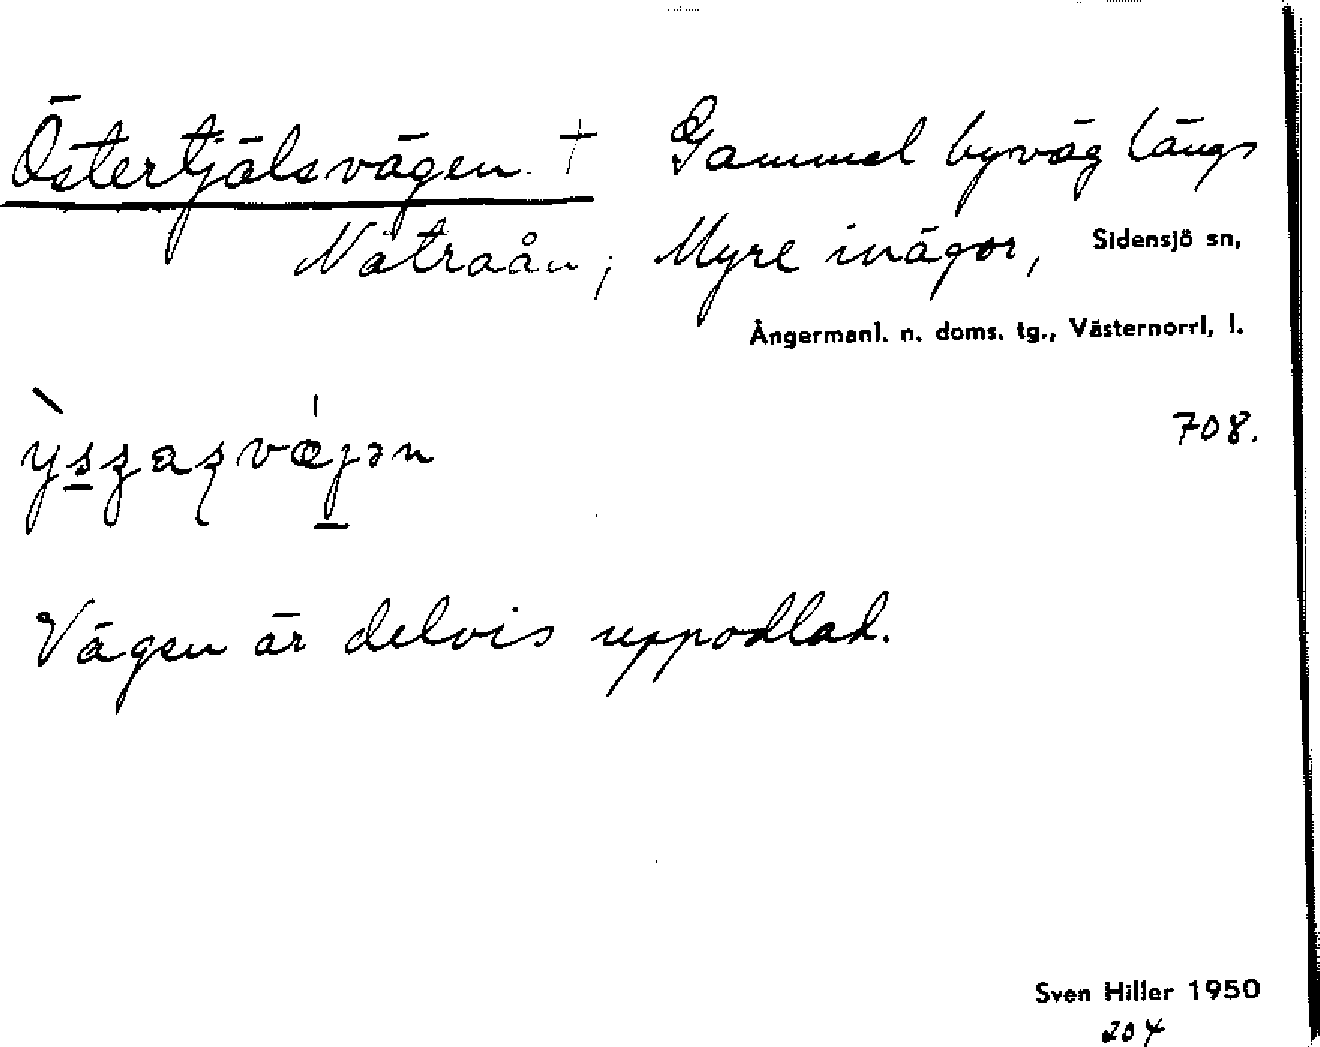 Östertjälsvägen. † Gammal byväg längs
Nätraån; Myre inägor, Sidensjö sn,
Ångermanl. n. doms. tg., Västernorrl, l.
708.
Vägen är delvis uppodlad.
Sven Hiller 1950
204